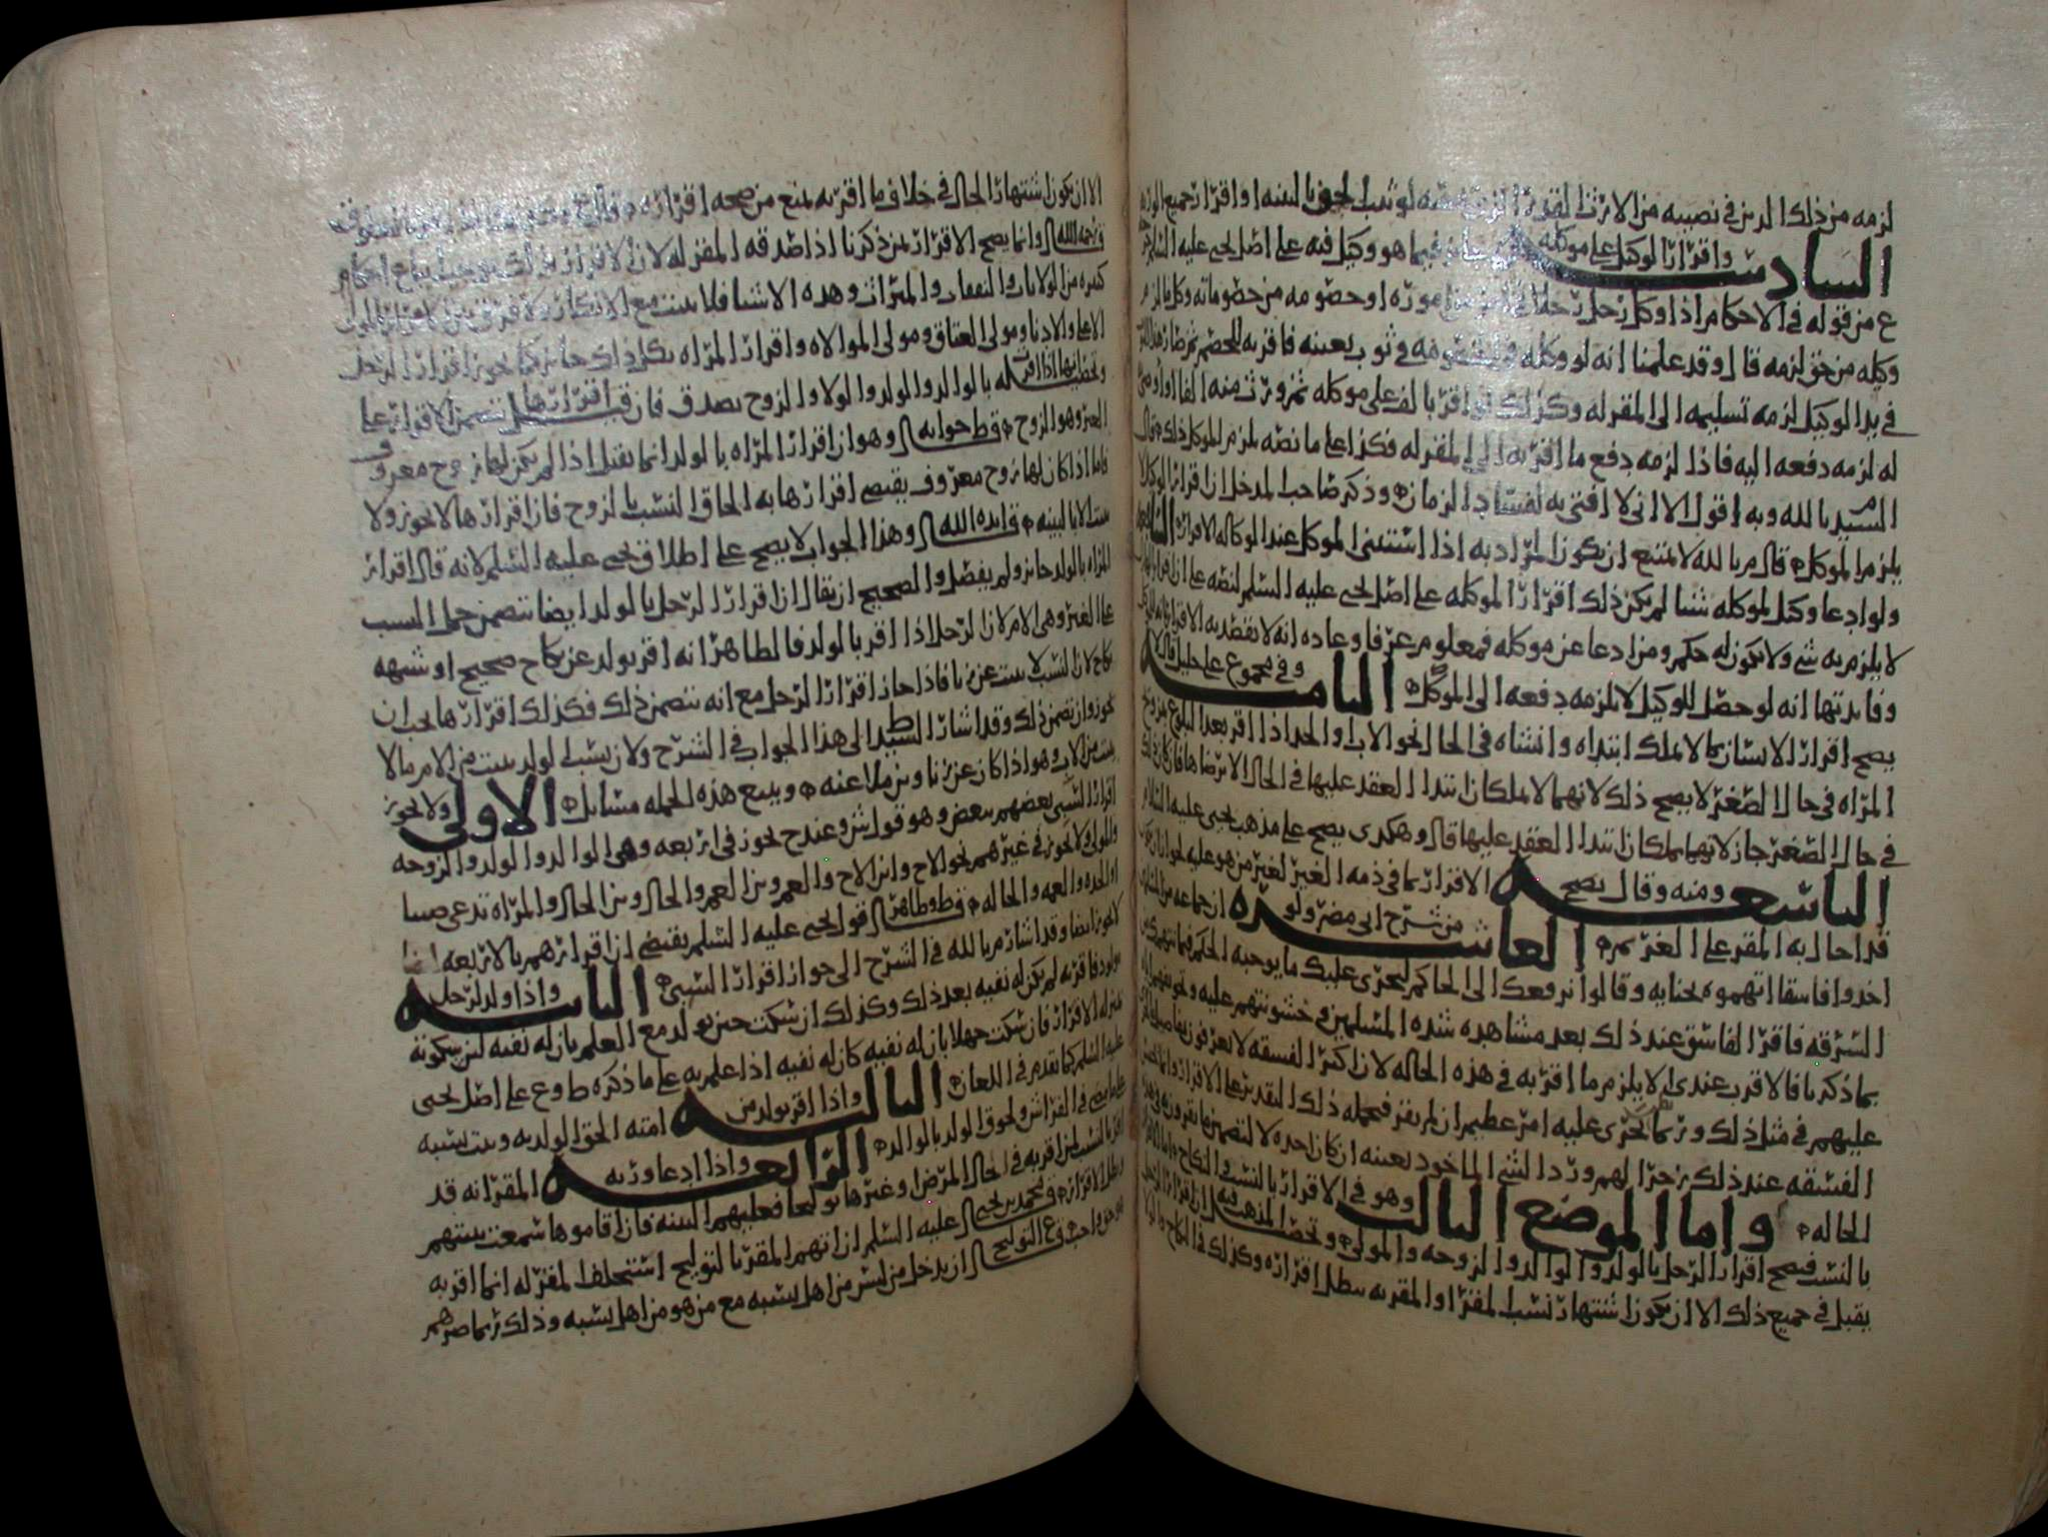 لزمه من ذلك الدين في نصيبه من الارث لو ثبت الحق بالبينه او اقرار جميع الورثه
السادسه واقرار الوكيل على موكله فيما هو وكيل فيه على اصل يحيى عليه السلام
ع من قوله في الاحكام اذا وكل رجل رجلا في اموره او خصومه من خصوماته وكل ما لزم
وكيله من حق لزمه قال وقد علمنا انه لو وكله في خصومه في ثوب بعينه فاقر به للخصم ثم صار هذا الثوب
في يد الوكيل لزمه تسليمه الى المقر له وكذلك لو اقر بالف على موكله ثم ورث منه الفا او اوصى
له لزمه دفعه اليه فاذا لزمه دفع ما اقر به الى المقر له فكذا على ما نصه يلزم الموكل ذلك قال
السيد بالله وبه اقول الا اني لا افتي به لفساد الزمان وذكر صاحب المدخل ان اقرار الوكيل
يلزم الموكل قال م بالله لا يمتنع ان يكون المراد به اذا استثنى الموكل عند الوكاله الاقرار السابعه
ولو ادعا وكيل لموكله شيا لم يكن ذلك اقرارا لموكله على اصل يحيى عليه السلم لنصه على ان اقرار
لا يلزم به شي ولا يكون له حكم ومن ادعا عن موكله فمعلوم عرفا وعاده انه لا يقصد به الاقرار
وفايدتها انه لو حصل للوكيل لا يلزمه دفعه الى الموكل الثامنه وفي مجموع علي خليل قال لا
يصح اقرار الانسان بما لا يملك ابتداه وانشاه في الحال نحو الاب والجد اذا اقر بعد البلوغ بتزويج
المراه في حال الصغر لا يصح ذلك لانهما لا يملكان ابتدا العقد عليها في الحال الا برضاها فان كان ذلك
في حال الصغر جاز لانهما يملكان ابتدا العقد عليها قال وهكذى يصح على مذهب يحيى عليه السلام
التاسعه ومنه وقال يصح الاقرار بما في ذمه الغير لغير من هو عليه نحو ان يكون
قد احال به المقر على الغير ثم العاشره من شرح ابي مضر ولو ان جماعه من
اخذوا فاسقا اتهموه بجنايه وقالوا نرفعك الى الحاكم ليجري عليك ما يوجبه الحكم
السرقه فاقر الفاسق عند ذلك بعد مشاهده شده المسلمين وخشونتهم عليه
بما ذكرنا فالاقرب عندي الا يلزم ما اقر به في هذه الحاله لان اكثر الفسقه لا يعرفون
عليهم في مثل ذلك وربما يجري عليه امر عظيم ان لم يقر فيحمله ذلك التقدير على الاقرار
الفسقه عند ذلك زجرا لهم ورد الشي الماخوذ بعينه ان كان اخذه لا لتضمينها
الحاله واما الموضع الثالث وهو في الاقرار بالنسب والنكاح
بالنسب فيصح اقرار الرجل بالولد والوالد والزوجه والمولى وتحصيل المذهب فيه ان اقرار الرجل
يقبل في جميع ذلك الا ان يكون اشتهار نسب المقر او المقر به يبطل اقراره وكذلك في النكاح
الا ان يكون اشتهار الحال في خلاف ما اقر به يمنع من صحه اقراره
رحمه الله وانما يصح الاقرار لمن ذكرنا اذا صدقه المقر له لان الاقرار بذلك يوجب اتباع احكام
كثيره من الولايات والنفقات والميراث وهذه الاشيا فلا تثبت مع الانكار ولا فرق بين الاقرار بالمولى
الاعلى والادنا ومولى العتاق ومولى الموالاه واقرار المراه بكل ذلك جائز كما يجوز اقرار الرجل
وتحصيله انها اذا اقرت بالوالد والولد والولا والزوج تصدق فان قيل اقرارها يتضمن الاقرار على
الغير وهو الزوج قط جوابه وهو ان اقرار المراه بالولد انما يقبل اذا لم يكن لها زوج معروف
فاما اذا كان لها زوج معروف يقتضي اقرارها به الحاق النسب بالزوج فان اقرارها لا يجوز ولا
يثبت الا بالبينه قايده الله وهذا الجواب لا يصح على اطلاق يحيى عليه السلم لانه قال اقرار
المراه بالولد جائز ولم يفصل والصحيح ان يقال ان اقرار الرجل بالولد ايضا يتضمن حمل النسب
على الغير وهي الام لان الرجل اذا اقر بالولد فالظاهر انه اقر بولد عن نكاح صحيح او شبهه
نكاح لان النسب لا يثبت عن زنا فاذا جاز اقرار الرجل مع انه يتضمن ذلك فكذلك اقرارها يجب ان
يجوز وان تضمن ذلك وقد اشار السيد ط الى هذا الجواب في الشرح ولان نسب الولد يثبت من الام ما لا
يثبت من الاب وهو اذا كان عن زنا ومن ملاعنه ويتبع هذه الجمله مسائل الاولى ولا يجوز
اقرار السبي بعضهم ببعض وهو قول ش وعند ح يجوز في اربعه وهي الوالد والولد والزوجه
والمولى ولا يجوز في غيرهم نحو الاخ وابن الاخ والعم وبن العم والخال وبن الخال والمراه تدعي صبيا
او الجده والعمه والخاله قط وظاهر قول يحيى عليه السلم يقتضي ان اقرارهم بالاربعه ايضا
لا يجوز ايضا وقد اشار م بالله في الشرح الى جواز اقرار السبي الثانيه واذا ولد لرجل
مولود فاقر به لم يكن له نفيه بعد ذلك وكذلك ان سكت حين يولد مع العلم بان له نفيه لان سكوته
بمنزله الاقرار فان سكت جهلا بان له نفيه كان له نفيه اذا علم به على ما ذكره ط وع على اصل يحيى
عليه السلم كما تقدم في اللعان الثالثه واذا اقر بولد من امته الحق الولد به وثبت نسبه
في الفراش ولحوق الولد بالوالد الرابعه واذا ادعا ورثه المقر انه قد
اقر بالنسب لمن اقر به في الحال المرض او غيرها توليجا فعليهم البينه فان اقاموها سمعت بينتهم
وبطل الاقرار ومحمد بن يحيى عليه السلم ان اتهم المقر بالتوليج استحلف المقر له انما اقر به
الا حق واجب وع التوليج ان يدخل من ليس من اهل نسبه مع من هو من اهل نسبه وذلك ربما صرهم